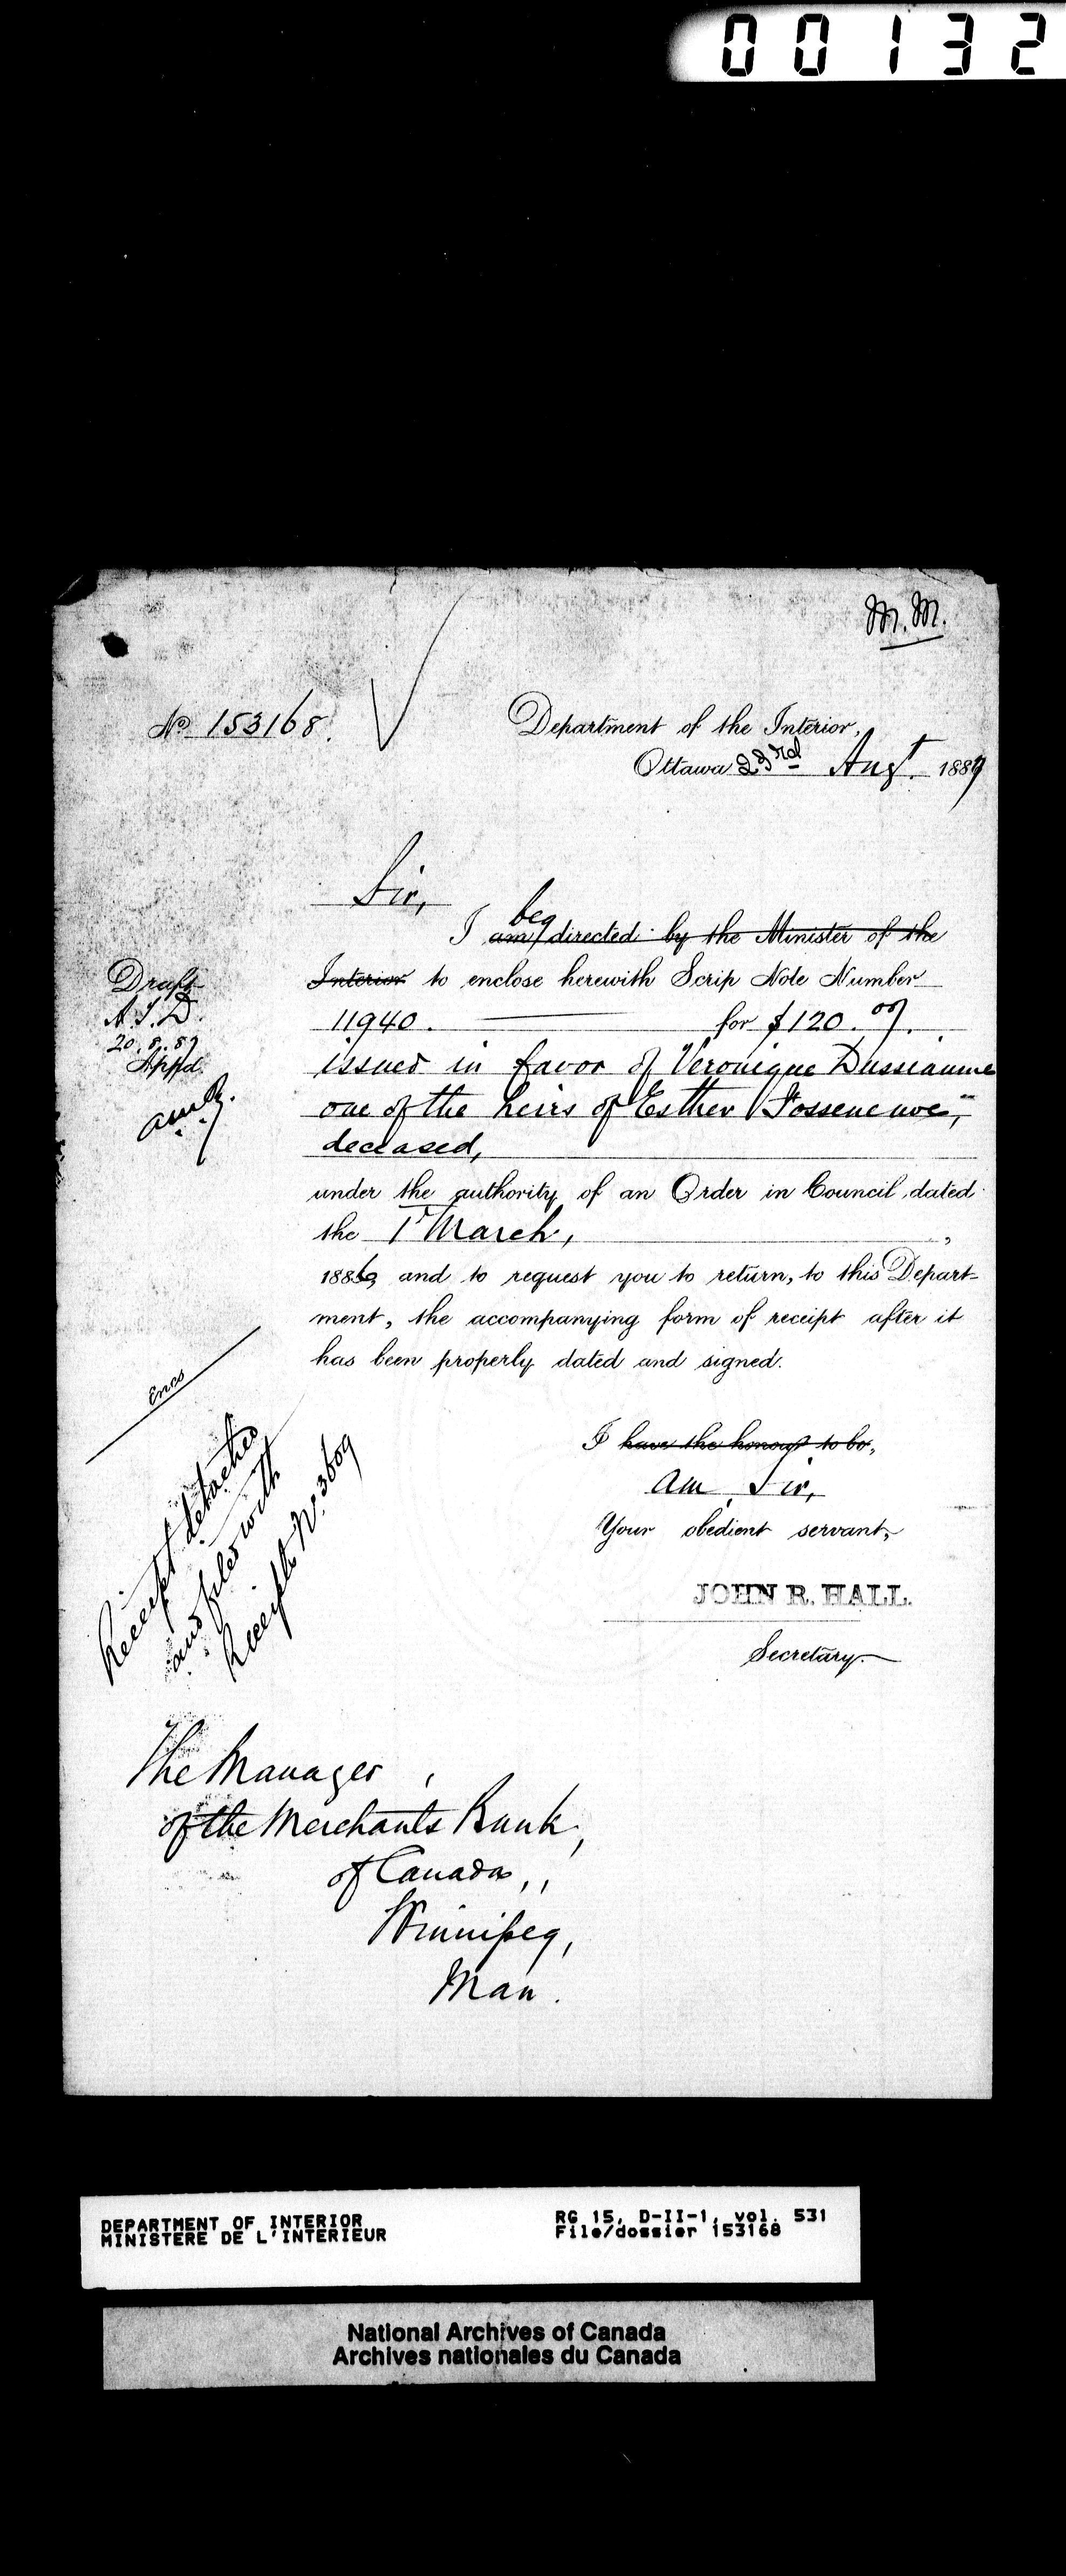 00132
M.M.
No 153168.
Department of the Interior,
Ottawa 23rd Augt. 1889
Sir,
beg
I am directed by the Minister of the
Interior to enclose herewith Scrip Note Number
11940. for $120.00/.
issued in favor of Veronique Dusseaume
one of the heirs of Esther
deceased,
under the authority of an Order in Council, dated
the 1st March,
1886, and to request you to return, to this Depart-
ment, the accompanying form of receipt after it
has been properly dated and signed.
Draft
20.8.89
Appd.
Encs
Receipt detached
and filed with
Receipts No. 3609
I have the honour to be,
am, Sir,
Your obedient servant,
JOHN R. HALL.
Secretary.
The Manager
of the Merchants Bank,
of Canada,,
Winnipeg,
Man.
DEPARTMENT OF INTERIOR
MINISTERE DE L'INTERIEUR
RG 15, D-II-1, vol. 531
File/dossier 153168
National Archives of Canada
Archives nationales du Canada